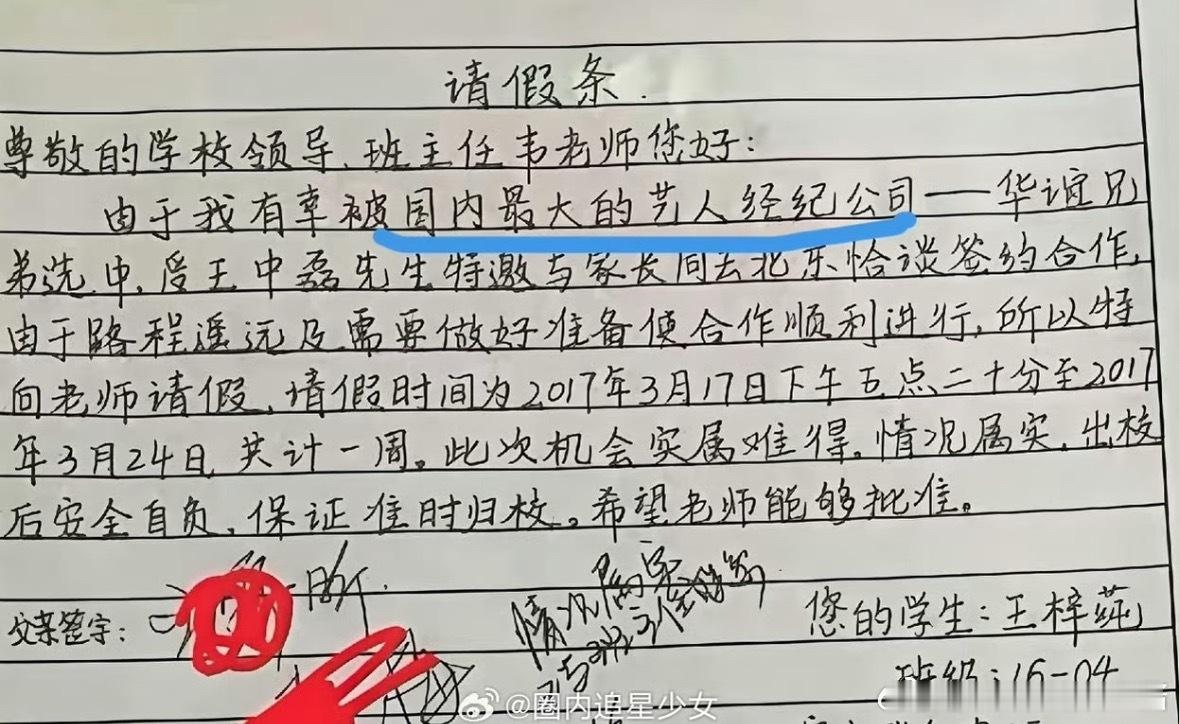 请假条.
尊敬的学校领导、班主任韦老师您好：
由于我有幸被国内最大的艺人经纪公司——华谊兄
弟选中，受王中磊先生特邀与家长同去北京恰谈签约合作，
由于路程遥远及需要做好准备使合作顺利进行，所以特
向老师请假，请假时间为2017年3月17日下午五点二十分至2017
年3月24日，共计一周。此次机会实属难得。情况属实，出校
后安全自负，保证准时归校。希望老师能够批准。
父亲签字：
情况属实
您的学生：王梓莼
班级：16-04
@圈内追星少女